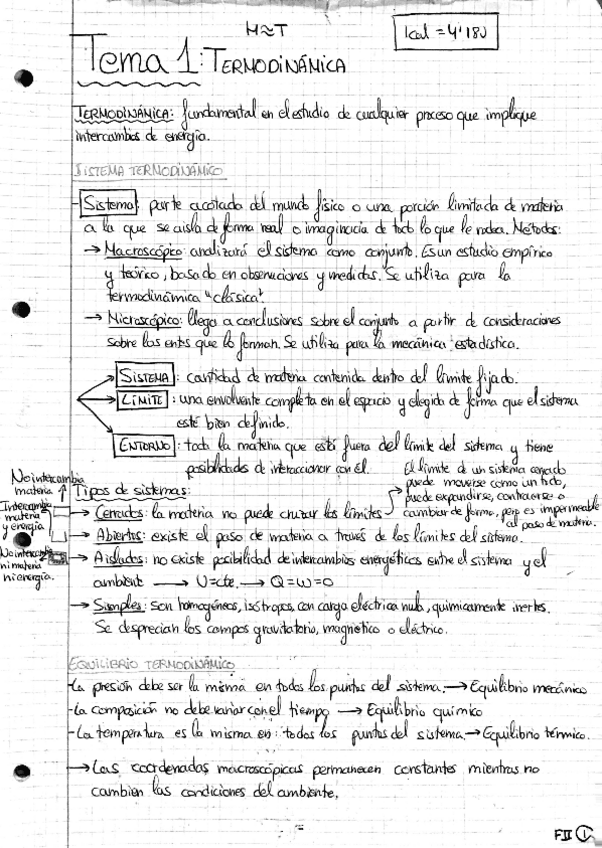 H≈T
1cal = 4'18J
Tema 1: TERMODINÁMICA
TERMODINÁMICA: fundamental en el estudio de cualquier proceso que implique
intercambios de energía.
SISTEMA TERMODINÁMICO
- Sistema: parte acotada del mundo físico o una porción limitada de materia
a la que se aisla de forma real o imaginaria de todo lo que le rodea. Métodos:
→ Macroscópico: analizará el sistema como conjunto. Es un estudio empírico
y teórico, basado en observaciones y medidas. Se utiliza para la
termodinámica "clásica".
→ Microscópico: llega a conclusiones sobre el conjunto a partir de consideraciones
sobre los entes que lo forman. Se utiliza para la mecánica estadística.
SISTEMA: cantidad de materia contenida dentro del límite fijado.
LÍMITE: una envolvente completa en el espacio y elegida de forma que el sistema
esté bien definido.
ENTORNO: toda la materia que está fuera del límite del sistema y tiene
posibilidades de interaccionar con él.
El límite de un sistema cerrado
puede moverse como un todo,
puede expandirse, contraerse o
cambiar de forma, pero es impermeable
al paso de materia.
No intercambia
materia
Intercambia
materia
y energía
No intercambia
ni materia
ni energía.
Tipos de sistemas:
→ Cerrados: la materia no puede cruzar los límites
→ Abiertos: existe el paso de materia a través de los límites del sistema.
→ Aislados: no existe posibilidad de intercambios energéticos entre el sistema y el
ambiente → U=cte. → Q=W=0
→ Simples: son homogéneos, isótropos, con carga eléctrica nula, químicamente inertes.
Se desprecian los campos gravitatorio, magnético o eléctrico.
EQUILIBRIO TERMODINÁMICO
-La presión debe ser la misma en todos los puntos del sistema. → Equilibrio mecánico
-La composición no debe variar con el tiempo → Equilibrio químico
-La temperatura es la misma en todos los puntos del sistema → Equilibrio térmico.
→ Las coordenadas macroscópicas permanecen constantes mientras no
cambien las condiciones del ambiente.
FII 1